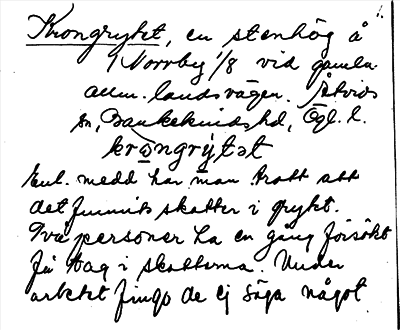 Krongrytet, en stenhög å
1 Norrby 1/8 vid gamla
allm. landsvägen. Åtvids
sn, Bankekinds hd, Ögl. l.
krọngrýtət
Enl. medd har man trott att
det funnits skatter i grytet.
Två personer ha en gång försökt
få tag i skatterna. Under
arbetet fingo de ej säga något